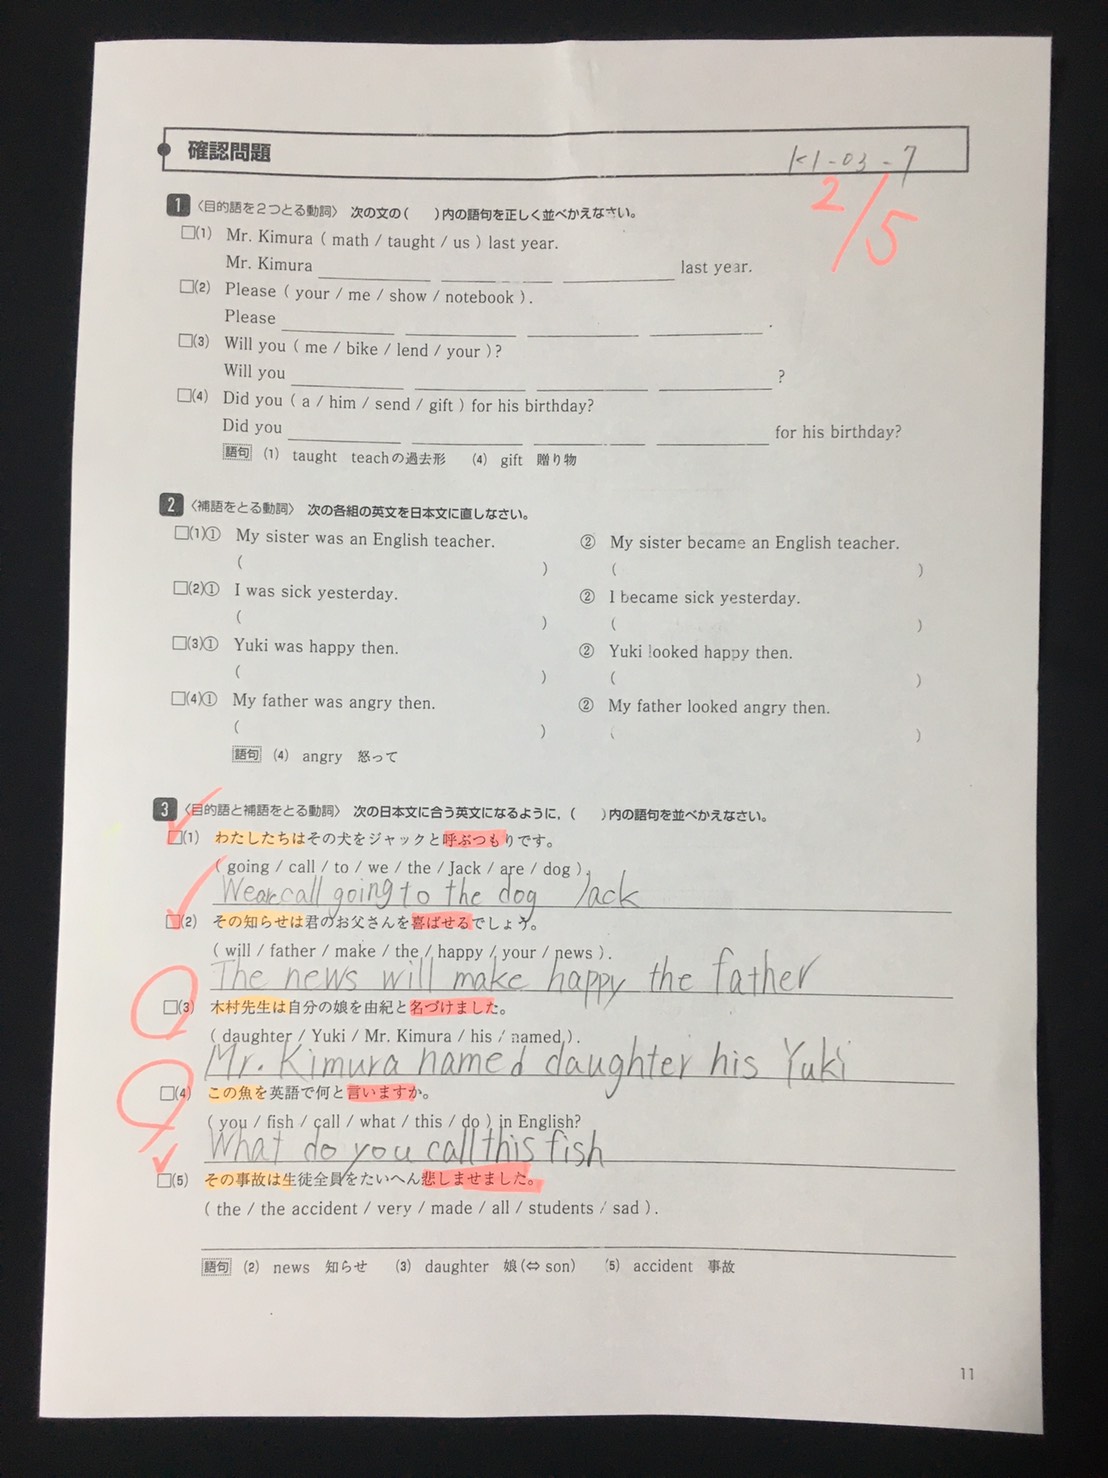 確認問題
K1-03-7
2/5
1 〈目的語を2つとる動詞〉 次の文の( )内の語句を正しく並べかえなさい。
□(1) Mr. Kimura ( math / taught / us ) last year.
Mr. Kimura ____ ____ ____ last year.
□(2) Please ( your / me / show / notebook ).
Please ____ ____ ____ ____ .
□(3) Will you ( me / bike / lend / your )?
Will you ____ ____ ____ ____ ?
□(4) Did you ( a / him / send / gift ) for his birthday?
Did you ____ ____ ____ ____ for his birthday?
語句 (1) taught teachの過去形 (4) gift 贈り物
2 〈補語をとる動詞〉 次の各組の英文を日本文に直しなさい。
□(1)① My sister was an English teacher. ② My sister became an English teacher.
( ) ( )
□(2)① I was sick yesterday. ② I became sick yesterday.
( ) ( )
□(3)① Yuki was happy then. ② Yuki looked happy then.
( ) ( )
□(4)① My father was angry then. ② My father looked angry then.
( ) ( )
語句 (4) angry 怒って
3 〈目的語と補語をとる動詞〉 次の日本文に合う英文になるように,( )内の語句を並べかえなさい。
□(1) わたしたちはその犬をジャックと呼ぶつもりです。
( going / call / to / we / the / Jack / are / dog ).
We are call going to the dog Jack
□(2) その知らせは君のお父さんを喜ばせるでしょう。
( will / father / make / the / happy / your / news ).
The news will make happy the father
□(3) 木村先生は自分の娘を由紀と名づけました。
( daughter / Yuki / Mr. Kimura / his / named ).
Mr. Kimura named daughter his Yuki
□(4) この魚を英語で何と言いますか。
( you / fish / call / what / this / do ) in English?
What do you call this fish
□(5) その事故は生徒全員をたいへん悲しませました。
( the / the accident / very / made / all / students / sad ).
語句 (2) news 知らせ (3) daughter 娘(⇔ son) (5) accident 事故
11